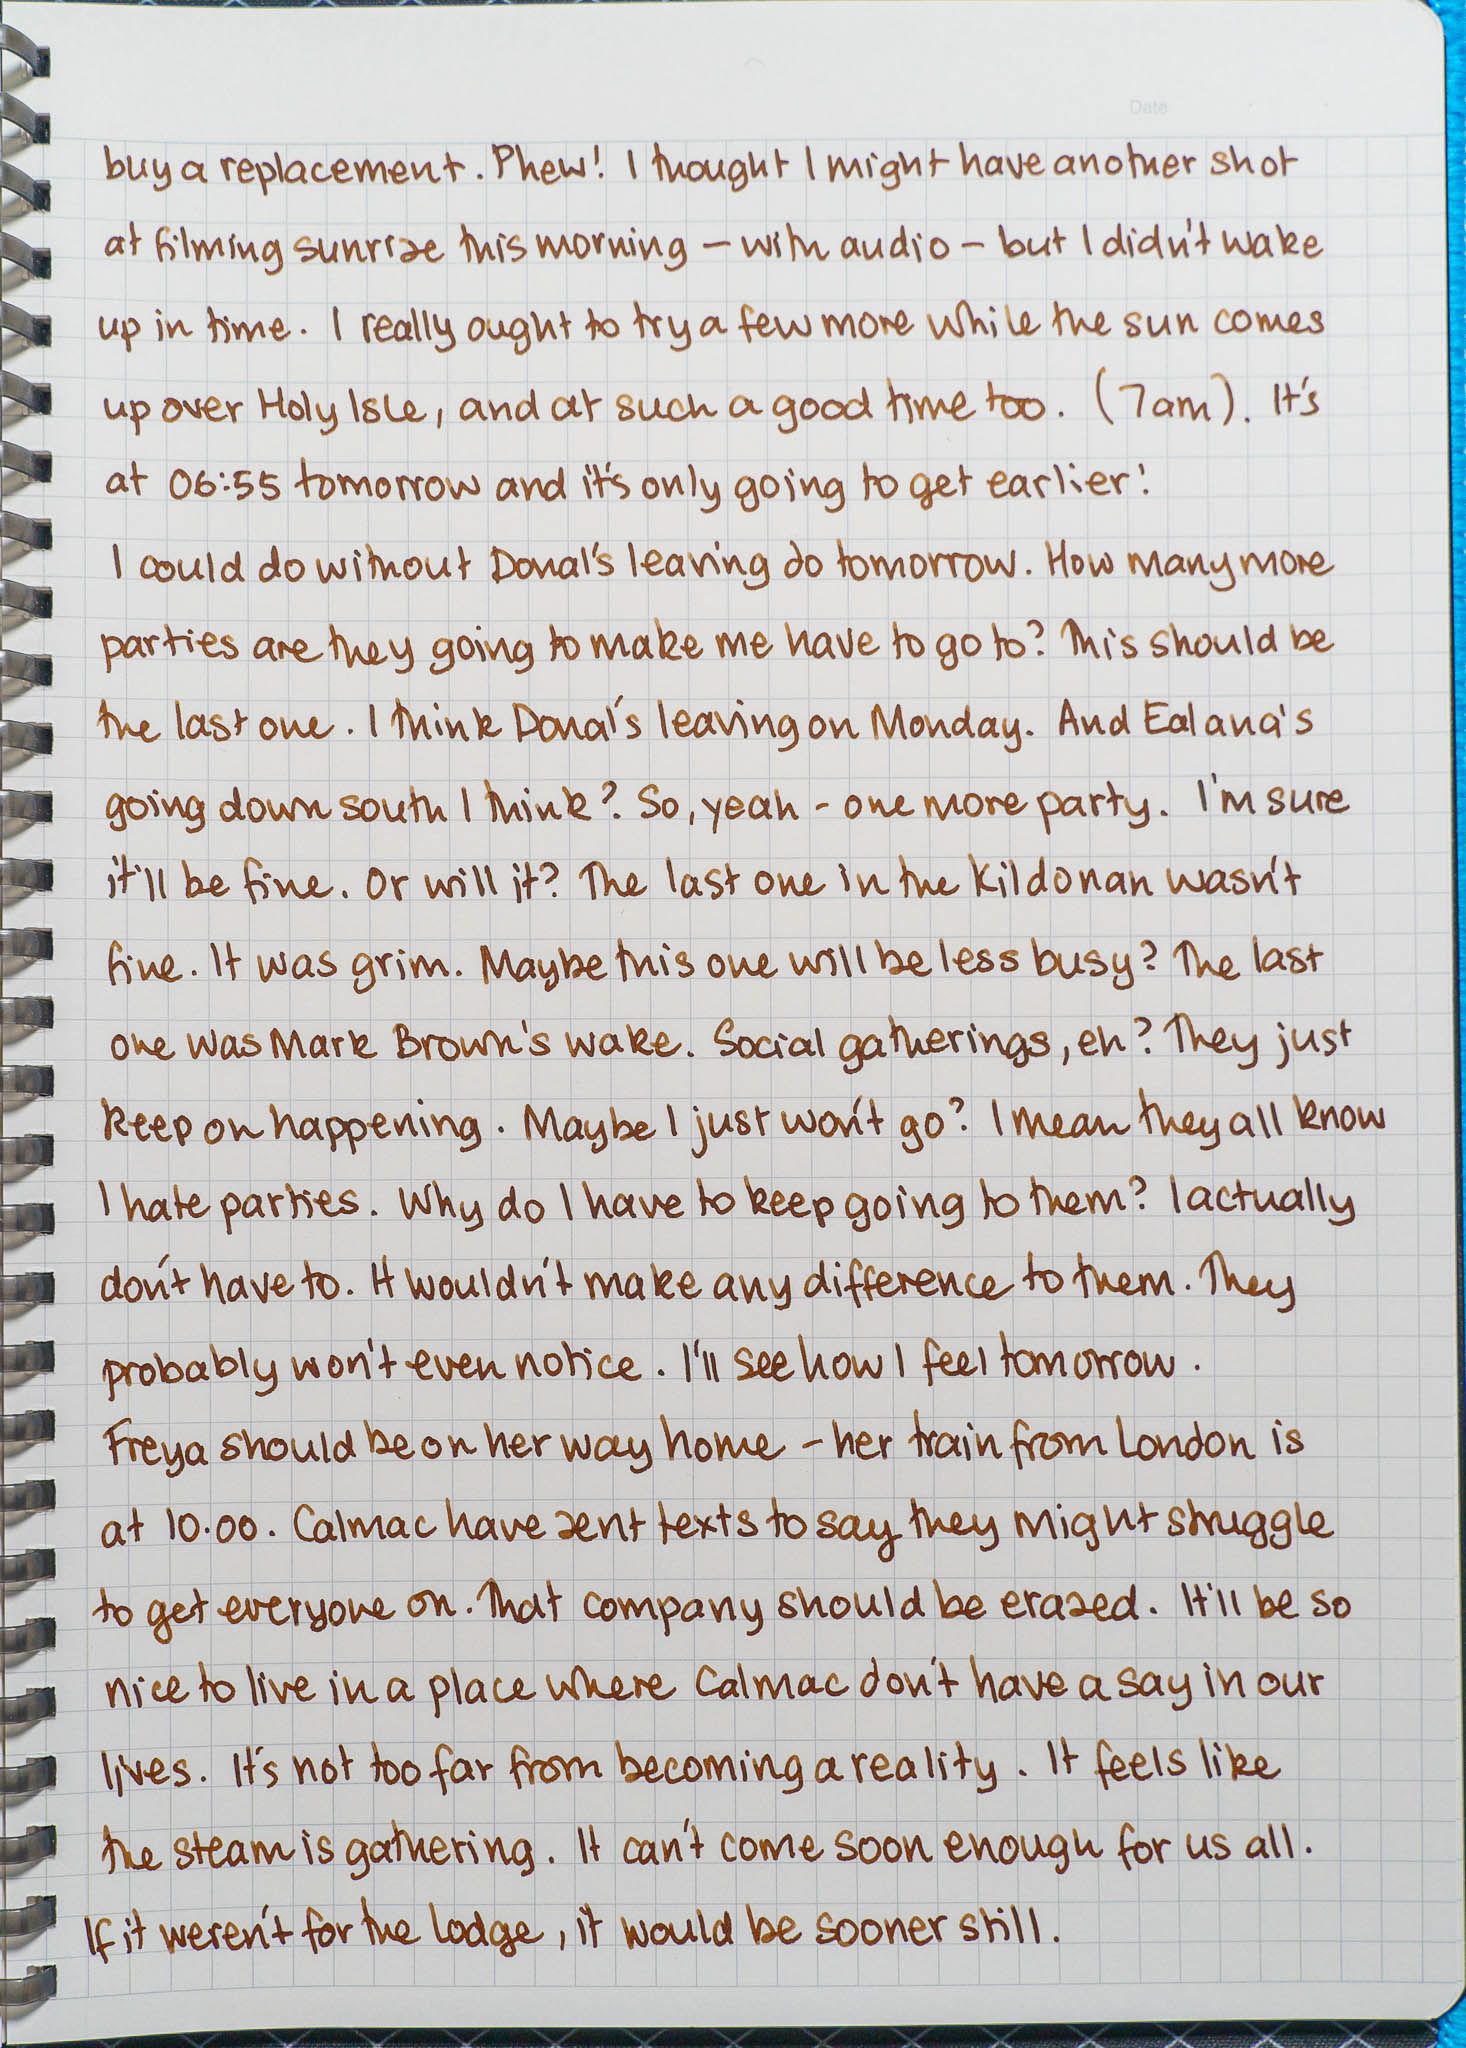 Date
buy a replacement. Phew! I thought I might have another shot
at filming sunrise this morning – with audio – but I didn't wake
up in time. I really ought to try a few more while the sun comes
up over Holy Isle, and at such a good time too. (7am). It's
at 06:55 tomorrow and it's only going to get earlier!
I could do without Donal's leaving do tomorrow. How many more
parties are they going to make me have to go to? This should be
the last one. I think Donal's leaving on Monday. And Ealana's
going down south I think? So, yeah - one more party. I'm sure
it'll be fine. Or will it? The last one in the Kildonan wasn't
fine. It was grim. Maybe this one will be less busy? The last
one was Mark Brown's wake. Social gatherings, eh? They just
keep on happening. Maybe I just won't go? I mean they all know
I hate parties. Why do I have to keep going to them? I actually
don't have to. It wouldn't make any difference to them. They
probably won't even notice. I'll see how I feel tomorrow.
Freya should be on her way home – her train from London is
at 10.00. Calmac have sent texts to say they might struggle
to get everyone on. That company should be erased. It'll be so
nice to live in a place where Calmac don't have a say in our
lives. It's not too far from becoming a reality. It feels like
the steam is gathering. It can't come soon enough for us all.
If it weren't for the lodge, it would be sooner still.